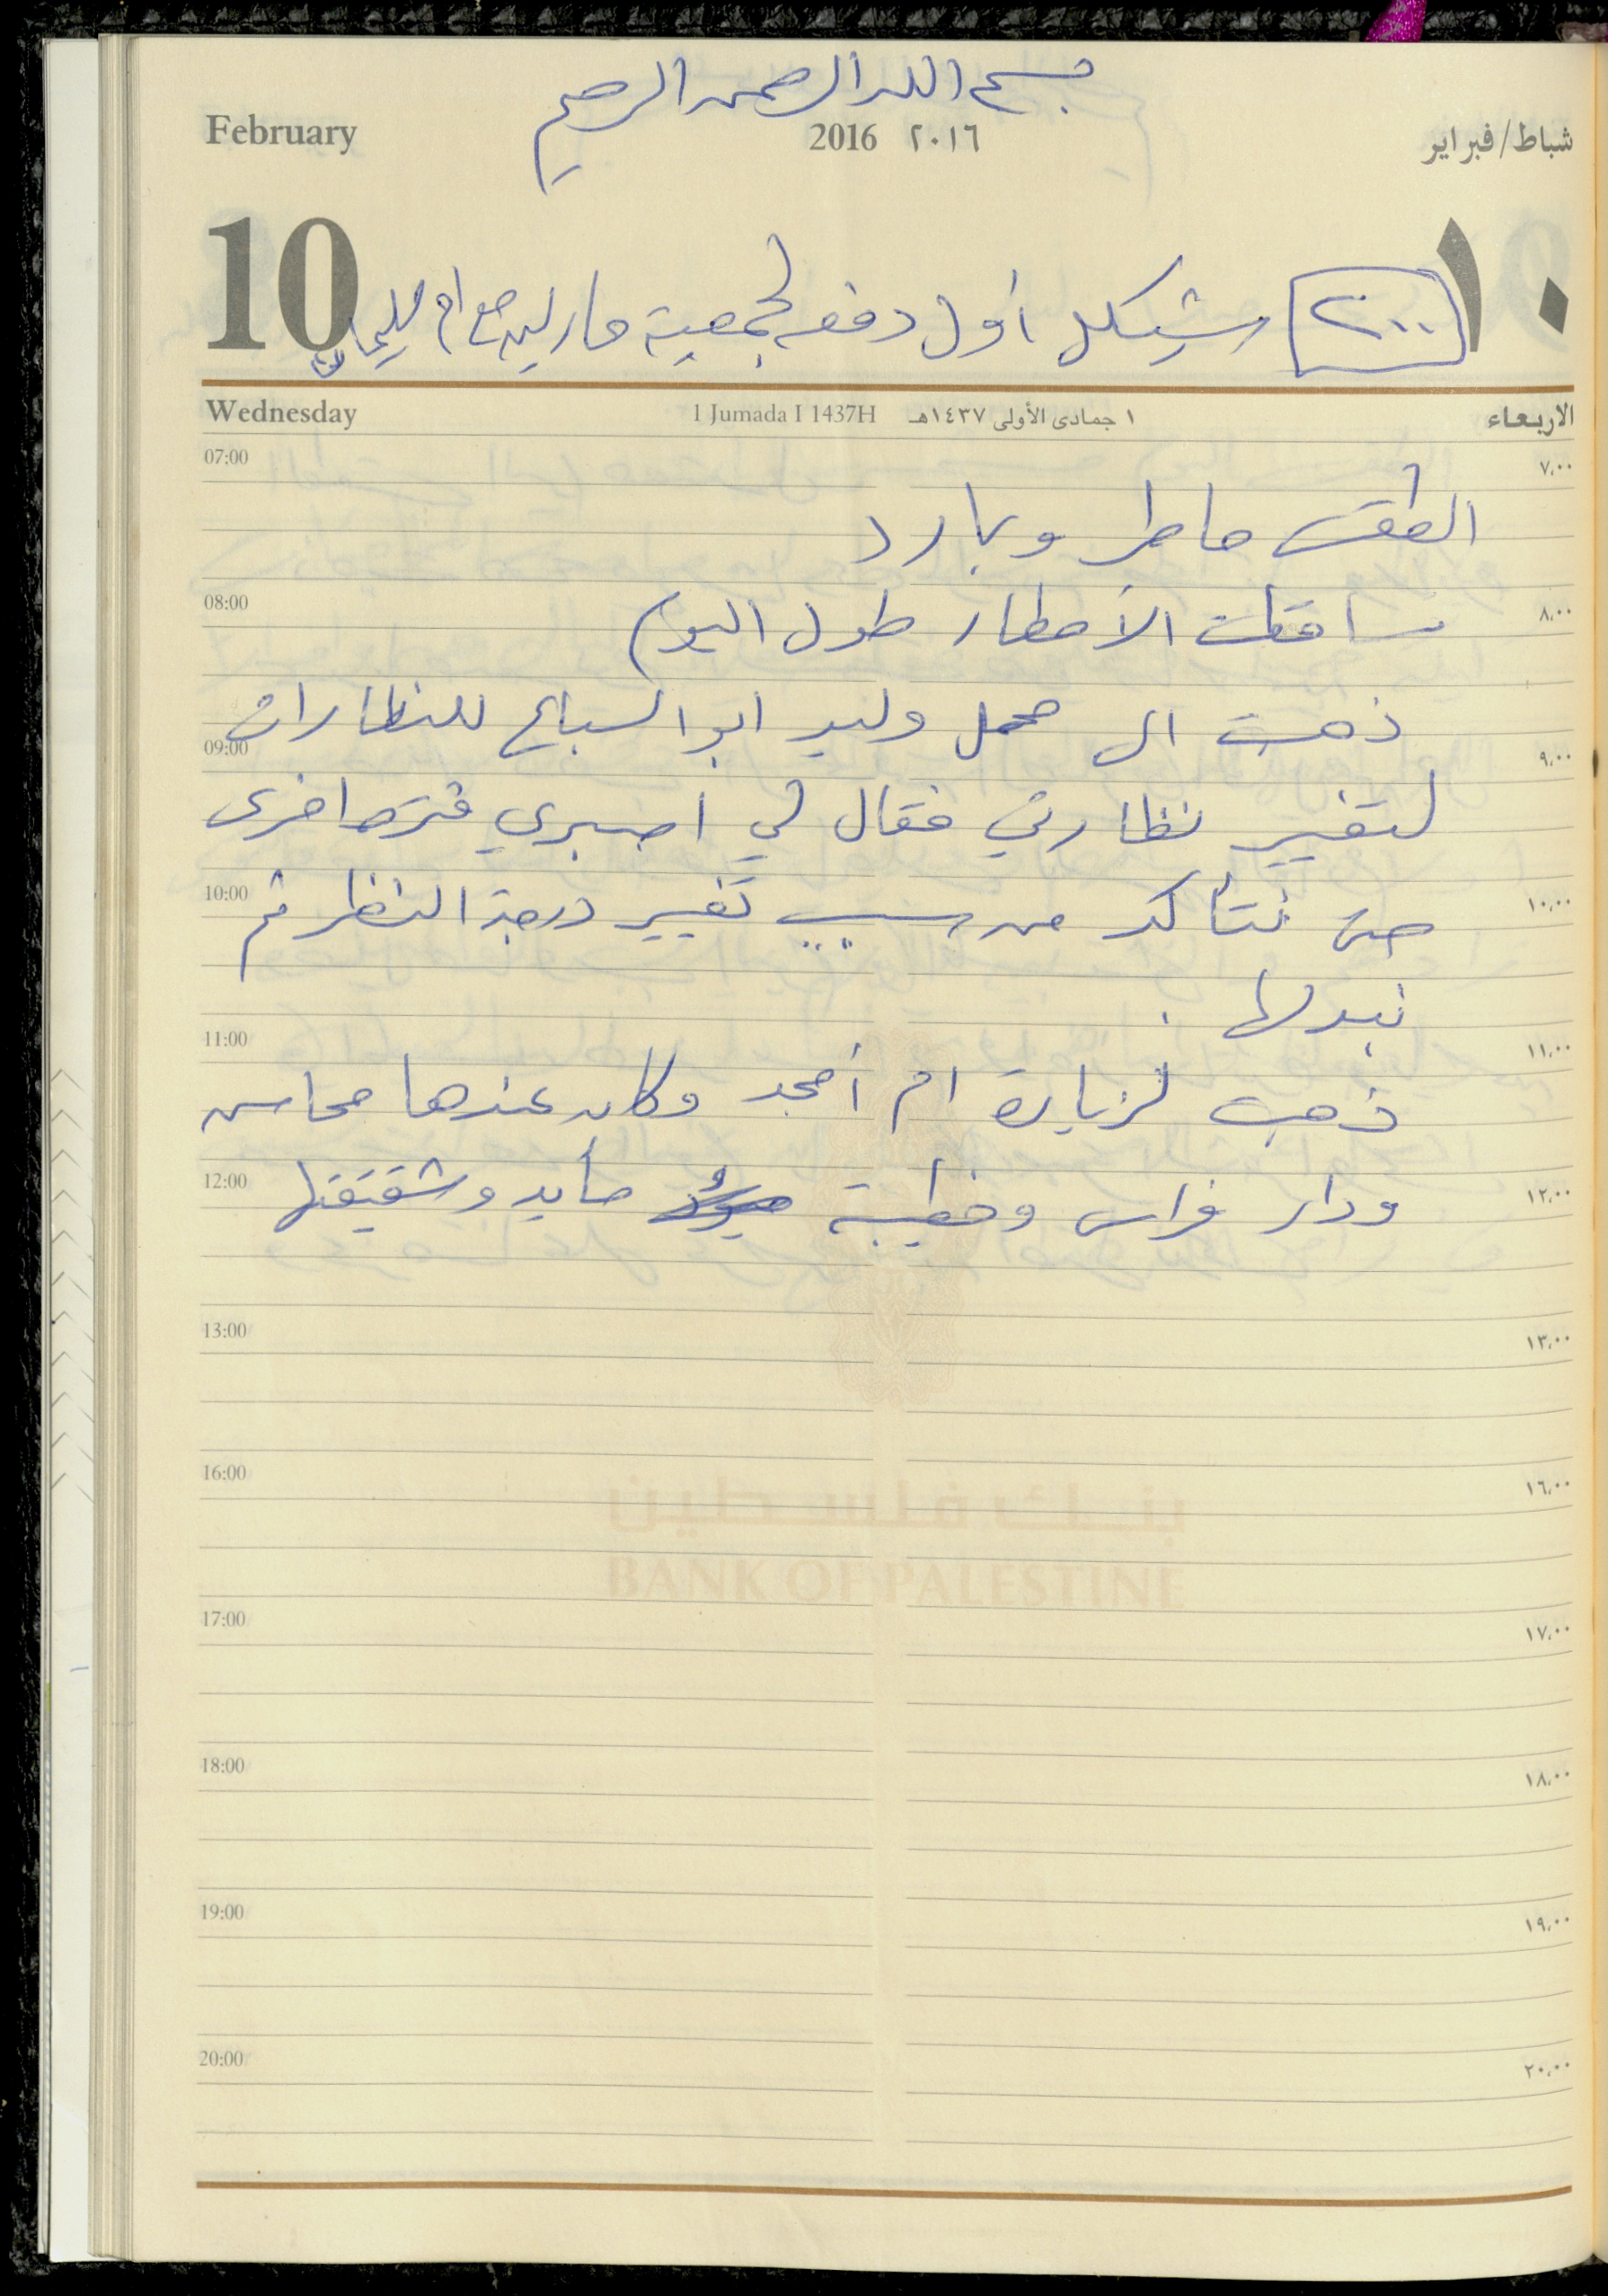 بسم الله الرحمن الرحيم
February 2016 ٢٠١٦ شباط/فبراير
10 ١٠
٢٠٠ شيكل أول دفعه لجمعية مارلين مع ام سليمان
Wednesday 1 Jumada I 1437H ١ جمادى الأولى ١٤٣٧هـ الاربعاء
07:00 ٧,٠٠
الطقس ماطر وبارد
08:00 ٨,٠٠
تساقطت الأمطار طول اليوم
ذهبت الى محمل وليد ابو السباع للنظارات
09:00 ٩,٠٠
لتغيير نظارتي فقال لي اصبري فتره اخرى
10:00 ١٠,٠٠
حتى نتأكد من سبب تغيير درجة النظر ثم
نبدلها .
11:00 ١١,٠٠
ذهبت لزيارة ام أمجد وكان عندها محاسن
12:00 ١٢,٠٠
ودار فراس وخطيبة مايد وشقيقتها
13:00 ١٣,٠٠
بنك فلسطين
BANK OF PALESTINE
16:00 ١٦,٠٠
17:00 ١٧,٠٠
18:00 ١٨,٠٠
19:00 ١٩,٠٠
20:00 ٢٠,٠٠